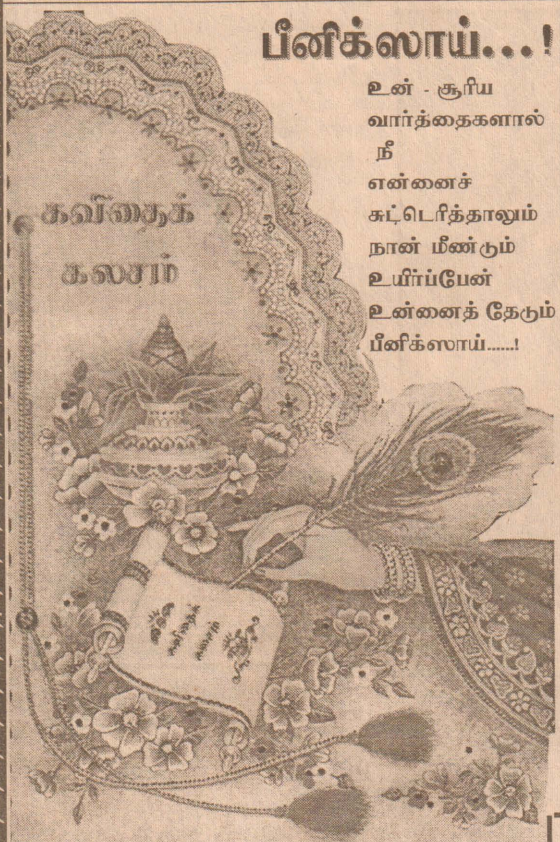 பீனிக்ஸாய்...!
உன் - சூரிய
வார்த்தைகளால்
நீ
என்னைச்
சுட்டெரித்தாலும்
நான் மீண்டும்
உயிர்ப்பேன்
உன்னைத் தேடும்
பீனிக்ஸாய்......!
கவிதைக்
கலசம்
கவிதைக்
கலசம்